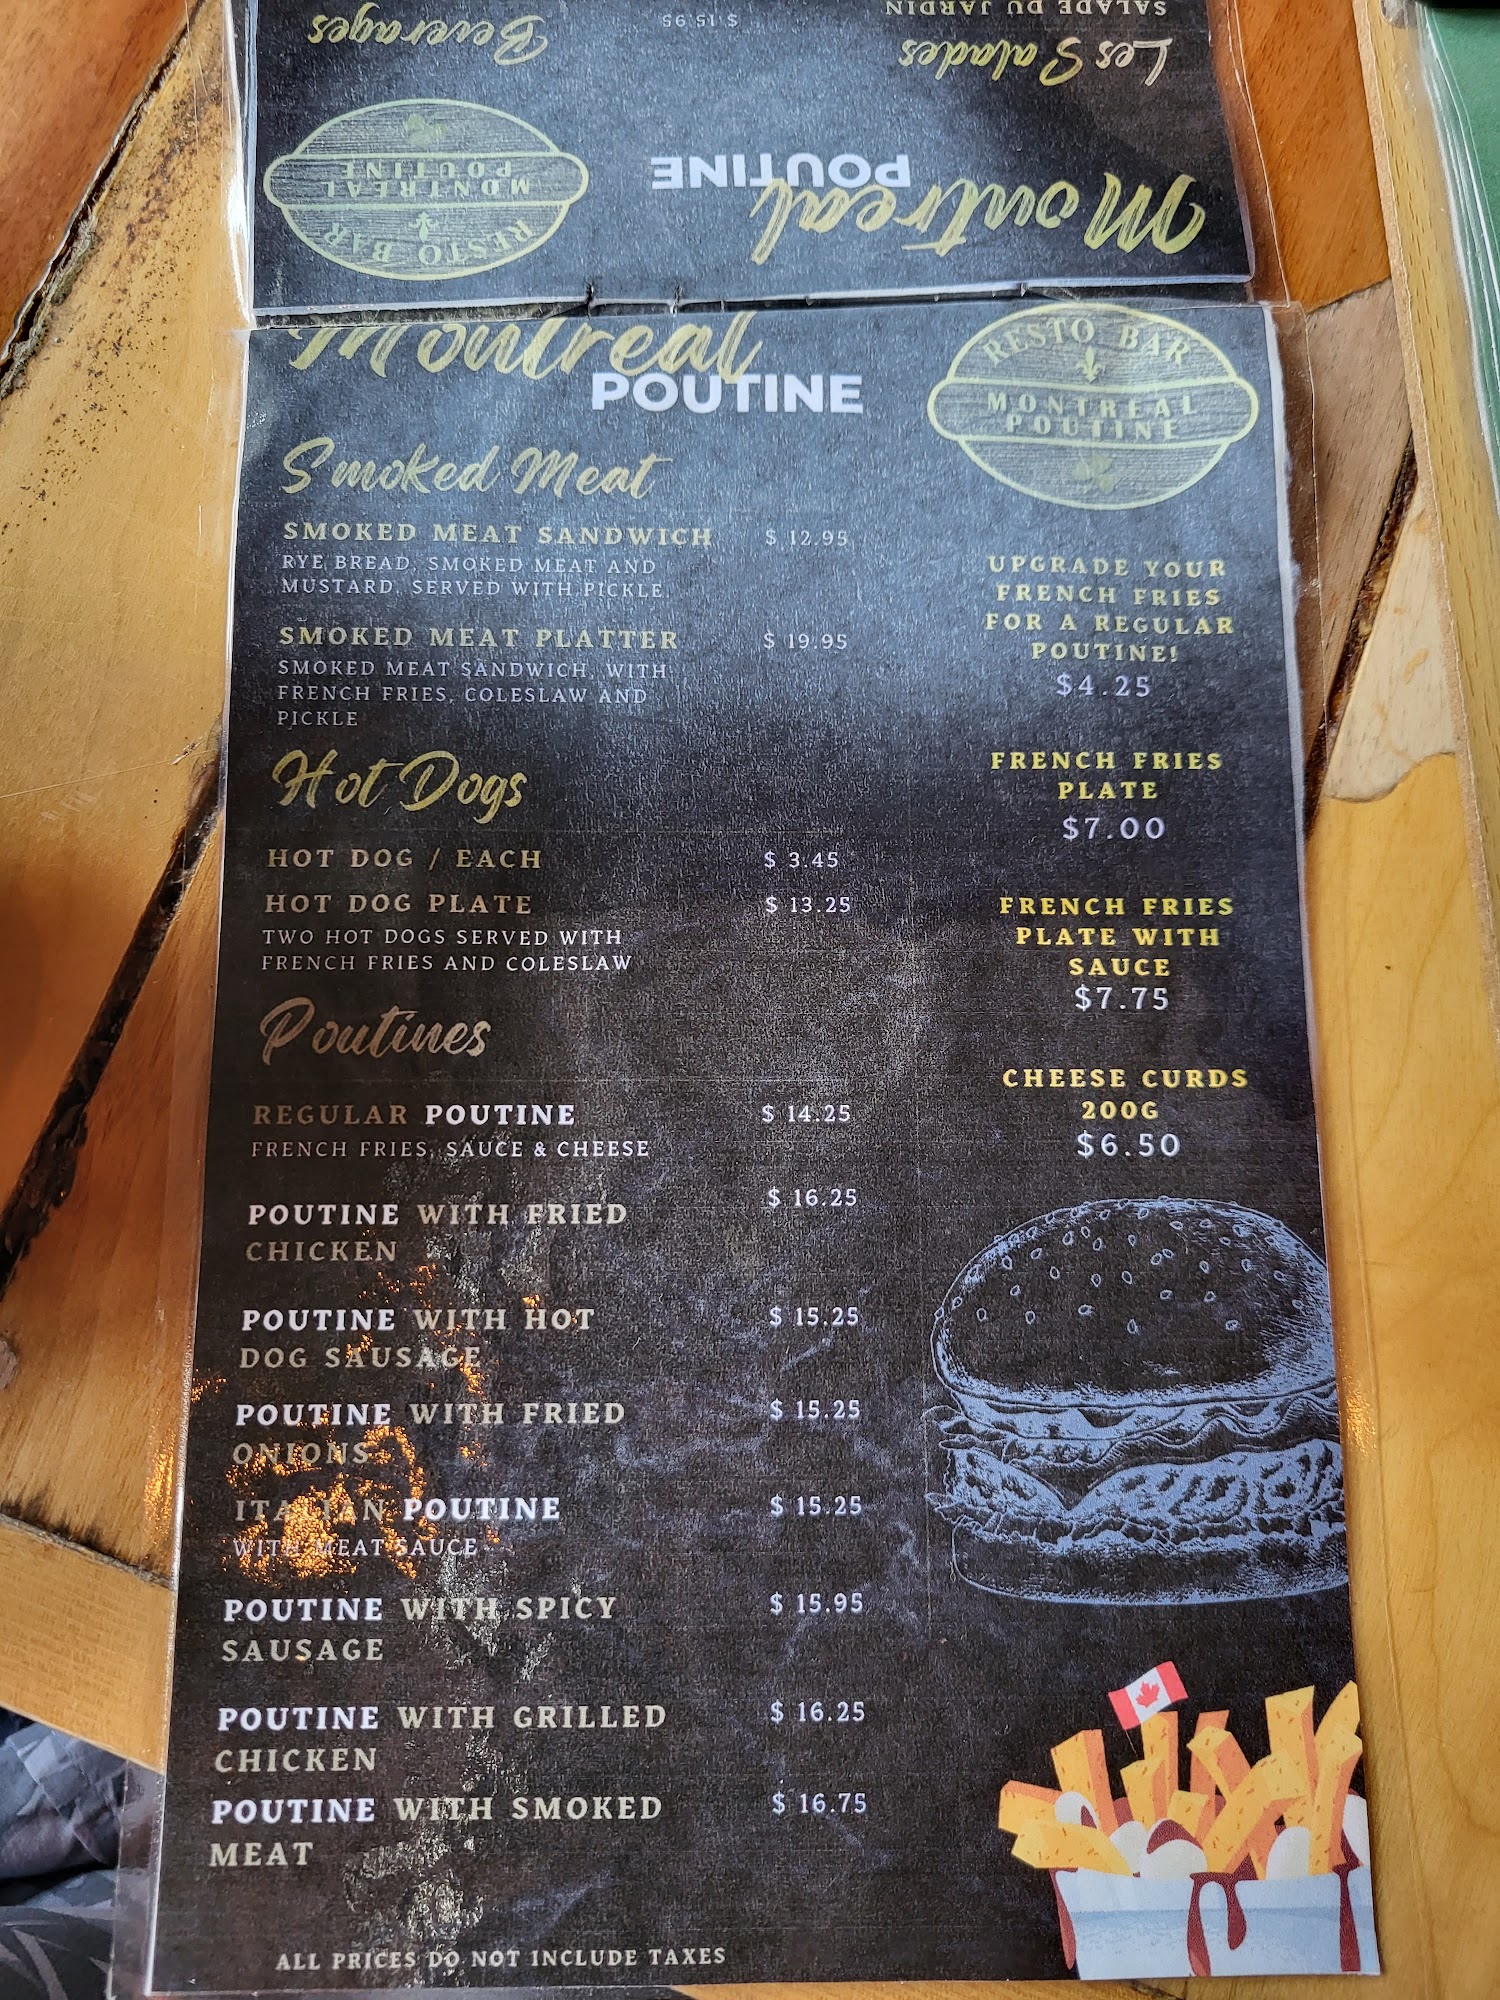 SALADE DU JARDIN
$ 15.95
Les Salades
Beverages
Montreal
POUTINE
RESTO BAR
MONTREAL
POUTINE
Montreal
POUTINE
RESTO BAR
MONTREAL
POUTINE
Smoked Meat
SMOKED MEAT SANDWICH $ 12.95
RYE BREAD, SMOKED MEAT AND
MUSTARD. SERVED WITH PICKLE.
SMOKED MEAT PLATTER $ 19.95
SMOKED MEAT SANDWICH, WITH
FRENCH FRIES, COLESLAW AND
PICKLE
Hot Dogs
HOT DOG / EACH $ 3.45
HOT DOG PLATE $ 13.25
TWO HOT DOGS SERVED WITH
FRENCH FRIES AND COLESLAW
Poutines
REGULAR POUTINE $ 14.25
FRENCH FRIES, SAUCE & CHEESE
POUTINE WITH FRIED $ 16.25
CHICKEN
POUTINE WITH HOT $ 15.25
DOG SAUSAGE
POUTINE WITH FRIED $ 15.25
ONIONS
ITALIAN POUTINE $ 15.25
WITH MEAT SAUCE
POUTINE WITH SPICY $ 15.95
SAUSAGE
POUTINE WITH GRILLED $ 16.25
CHICKEN
POUTINE WITH SMOKED $ 16.75
MEAT
UPGRADE YOUR
FRENCH FRIES
FOR A REGULAR
POUTINE!
$4.25
FRENCH FRIES
PLATE
$7.00
FRENCH FRIES
PLATE WITH
SAUCE
$7.75
CHEESE CURDS
200G
$6.50
ALL PRICES DO NOT INCLUDE TAXES